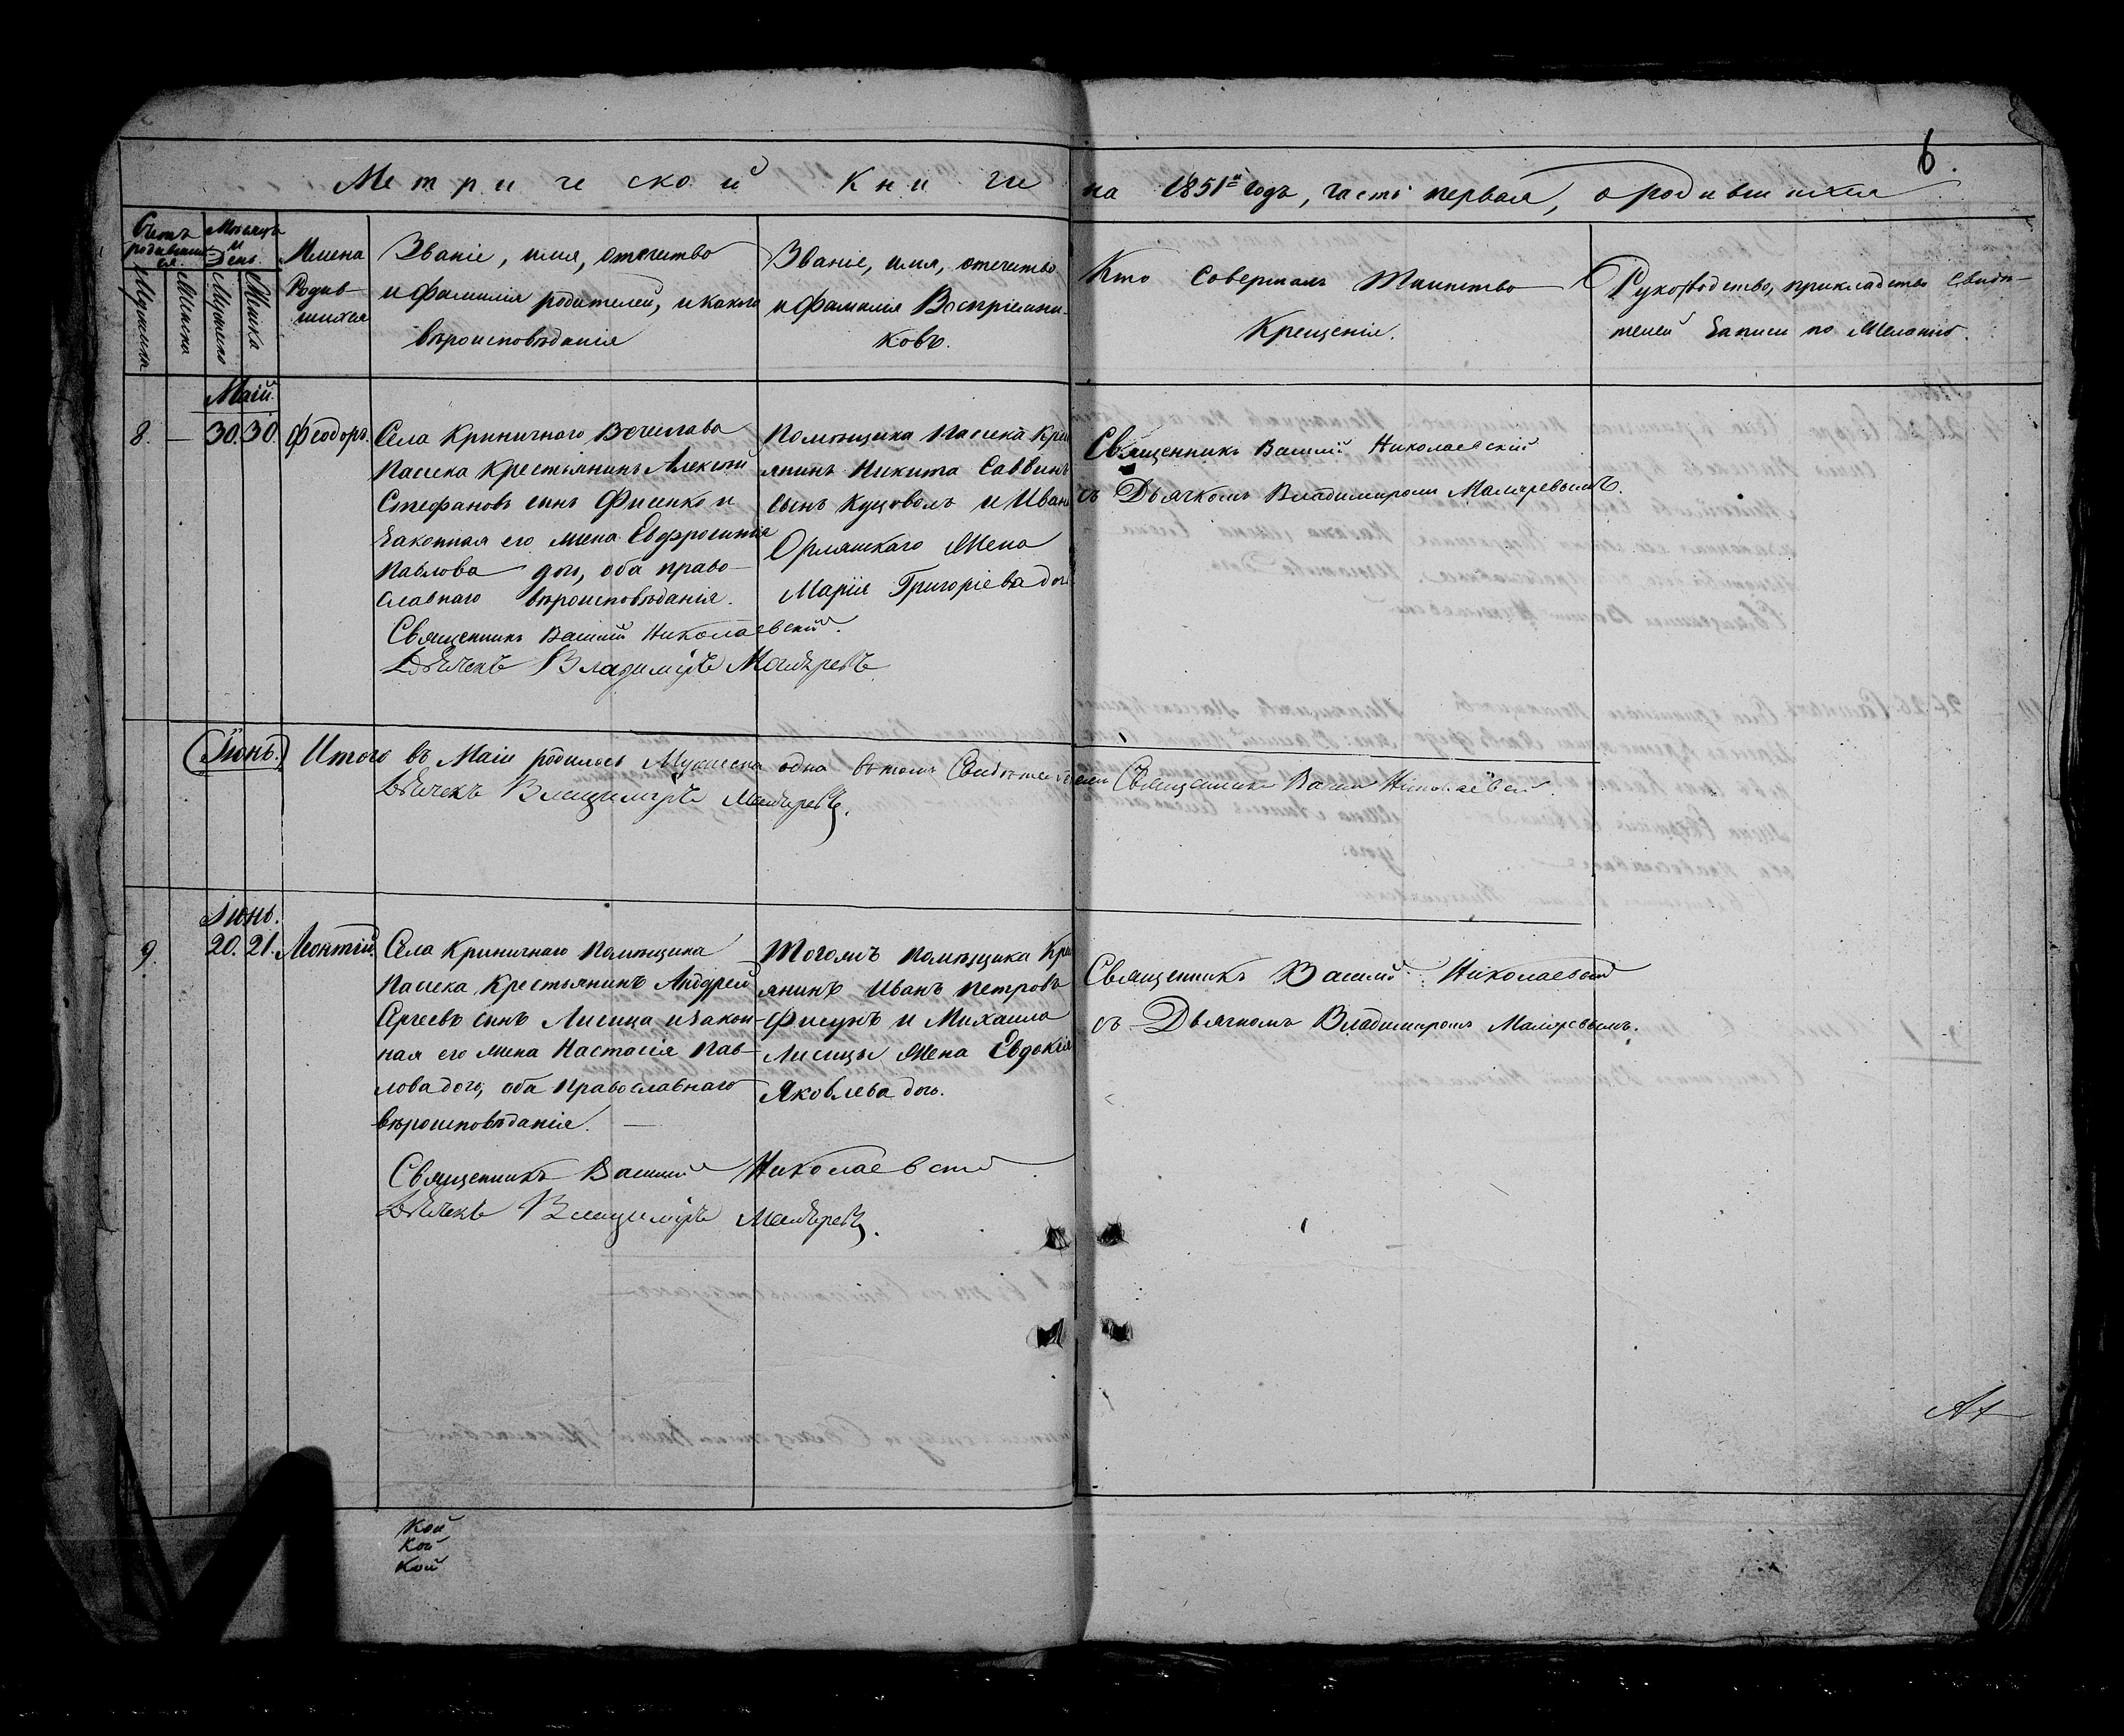 6.
Метрической книги на 1851й годъ, часть первая, о родившихся
Счетъ родившихся.
Мѣсяцъ и День.
Имена Родившихся
Званіе, имя, отчество
и фамилія родителей, и какого
вѣроисповѣданія
Званіе, имя, отчество
и фамилія Воспріемни-
ковъ.
Кто совершалъ Таинство
Крещенія.
Рукоприкладство свидѣ-
телей записи по желанію.
Маій.
8. — 30. 30. Феодоръ.
Села Криничного
Пасека Крестьянинъ Алексѣй
Стефановъ сынъ Фисенко и
законная его жена Евфросинія
Павлова доч, оба право-
славнаго вѣроисповѣданія.
Священникъ Василій Николаевскій.
Дьячекъ Владиміръ
Помѣщика Пасека Кре
янинъ Никита Саввинъ
сынъ и Иван
Орлянскаго Жена
Марія Григоріева доч
Священникъ Василій Николаевскій
съ Дьячкомъ Владимиромъ
Іюнь. Итого въ Маіи родилось Мужеска одна въ томъ Священникъ Василій Николаевскій
Дьячекъ Владиміръ
Іюнь.
9. 20. 21. Леонтій.
Села Криничного Помѣщика
Пасека Крестьянинъ Андрей
Сергеевъ сынъ Лисица и закон-
ная его жена Настасія Пав-
лова доч, оба Православнаго
вѣроисповѣданія. —
Священникъ Василий Николаевскій
Дьячекъ Владиміръ
Тогожъ помѣщика Кре
янинъ Иванъ Петровъ
Фисунъ и Михаила
Лисицы Жена Евдокія
Яковлева доч.
Священникъ Василій Николаевскій
съ Дьячкомъ Владимиромъ
кой
кой
кой